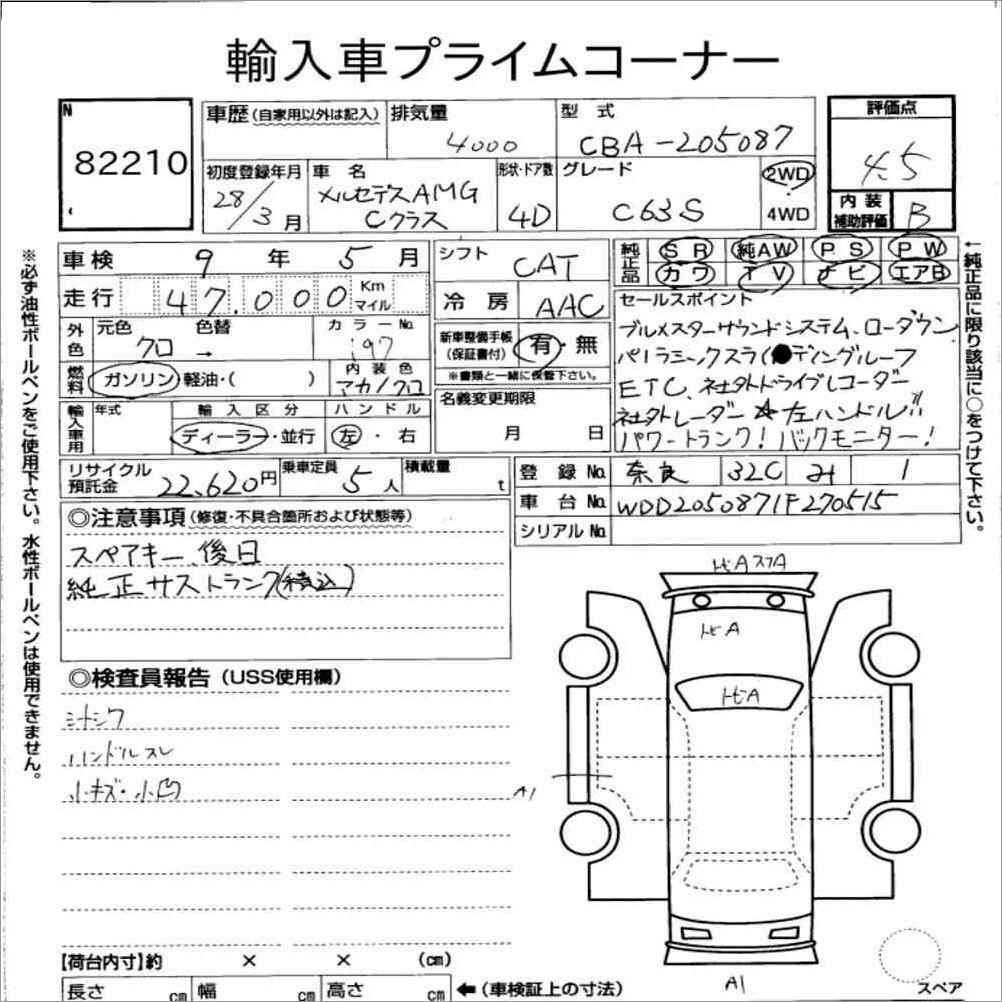 輸入車プライムコーナー
N
82210
車歴 (自家用以外は記入)
排気量
4000
型式
CBA-205087
評価点
4.5
初度登録年月
28/3月
車名
メルセデスAMG
Cクラス
形状・ドア数
4D
グレード
C63S
2WD
4WD
内装
補助評価
B
※必ず油性ボールペンをご使用下さい。水性ボールペンは使用できません。
車検 9年 5月
走行 47,000 Km
マイル
外色
元色
クロ
色替
→
カラーNo.
197
燃料
ガソリン・軽油・( )
内装色
マカノクロ
輸入車用
年式
輸入区分
ディーラー・並行
ハンドル
左・右
シフト
CAT
冷房
AAC
新車整備手帳
(保証書付)
有・無
※書類と一緒に保管下さい。
名義変更期限
月 日
純正品
SR 純AW PS PW
カワ TV ナビ エアB
セールスポイント
ブルメスターサウンドシステム、ローダウン
パノラミックスライディングルーフ
ETC、社外ドライブレコーダー
社外レーダー ☆左ハンドル!!
パワートランク!バックモニター!
←純正品に限り該当に○をつけて下さい。
リサイクル
預託金
22,620円
乗車定員
5人
積載量
t
登録No.
奈良 32C み 1
車台No.
WDD2050871F270515
シリアルNo.
◎注意事項 (修復・不具合箇所および状態等)
スペアキー、後日
純正サストランク(積込)
◎検査員報告 (USS使用欄)
シートシワ
ハンドルスレ
小キズ・小凹
A1
A1
スペア
【荷台内寸】約 × × (cm)
長さ cm 幅 cm 高さ cm ←(車検証上の寸法)